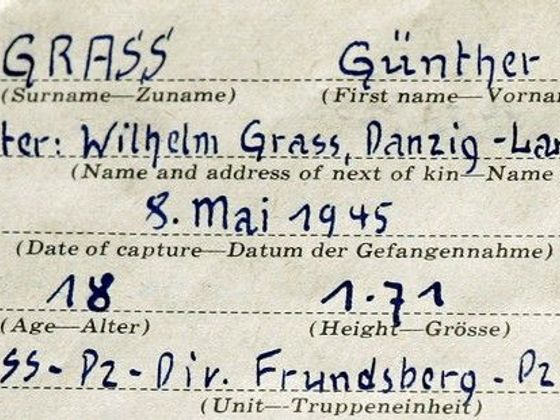 GRASS Günther
(Surname—Zuname) (First name—Vorna
ter: Wilhelm Grass, Danzig-Lan
(Name and address of next of kin—Name
8. Mai 1945
(Date of capture—Datum der Gefangennahme)
18 1.71
(Age—Alter) (Height—Grösse)
SS-Pz-Div. Frundsberg - Pz
(Unit—Truppeneinheit)